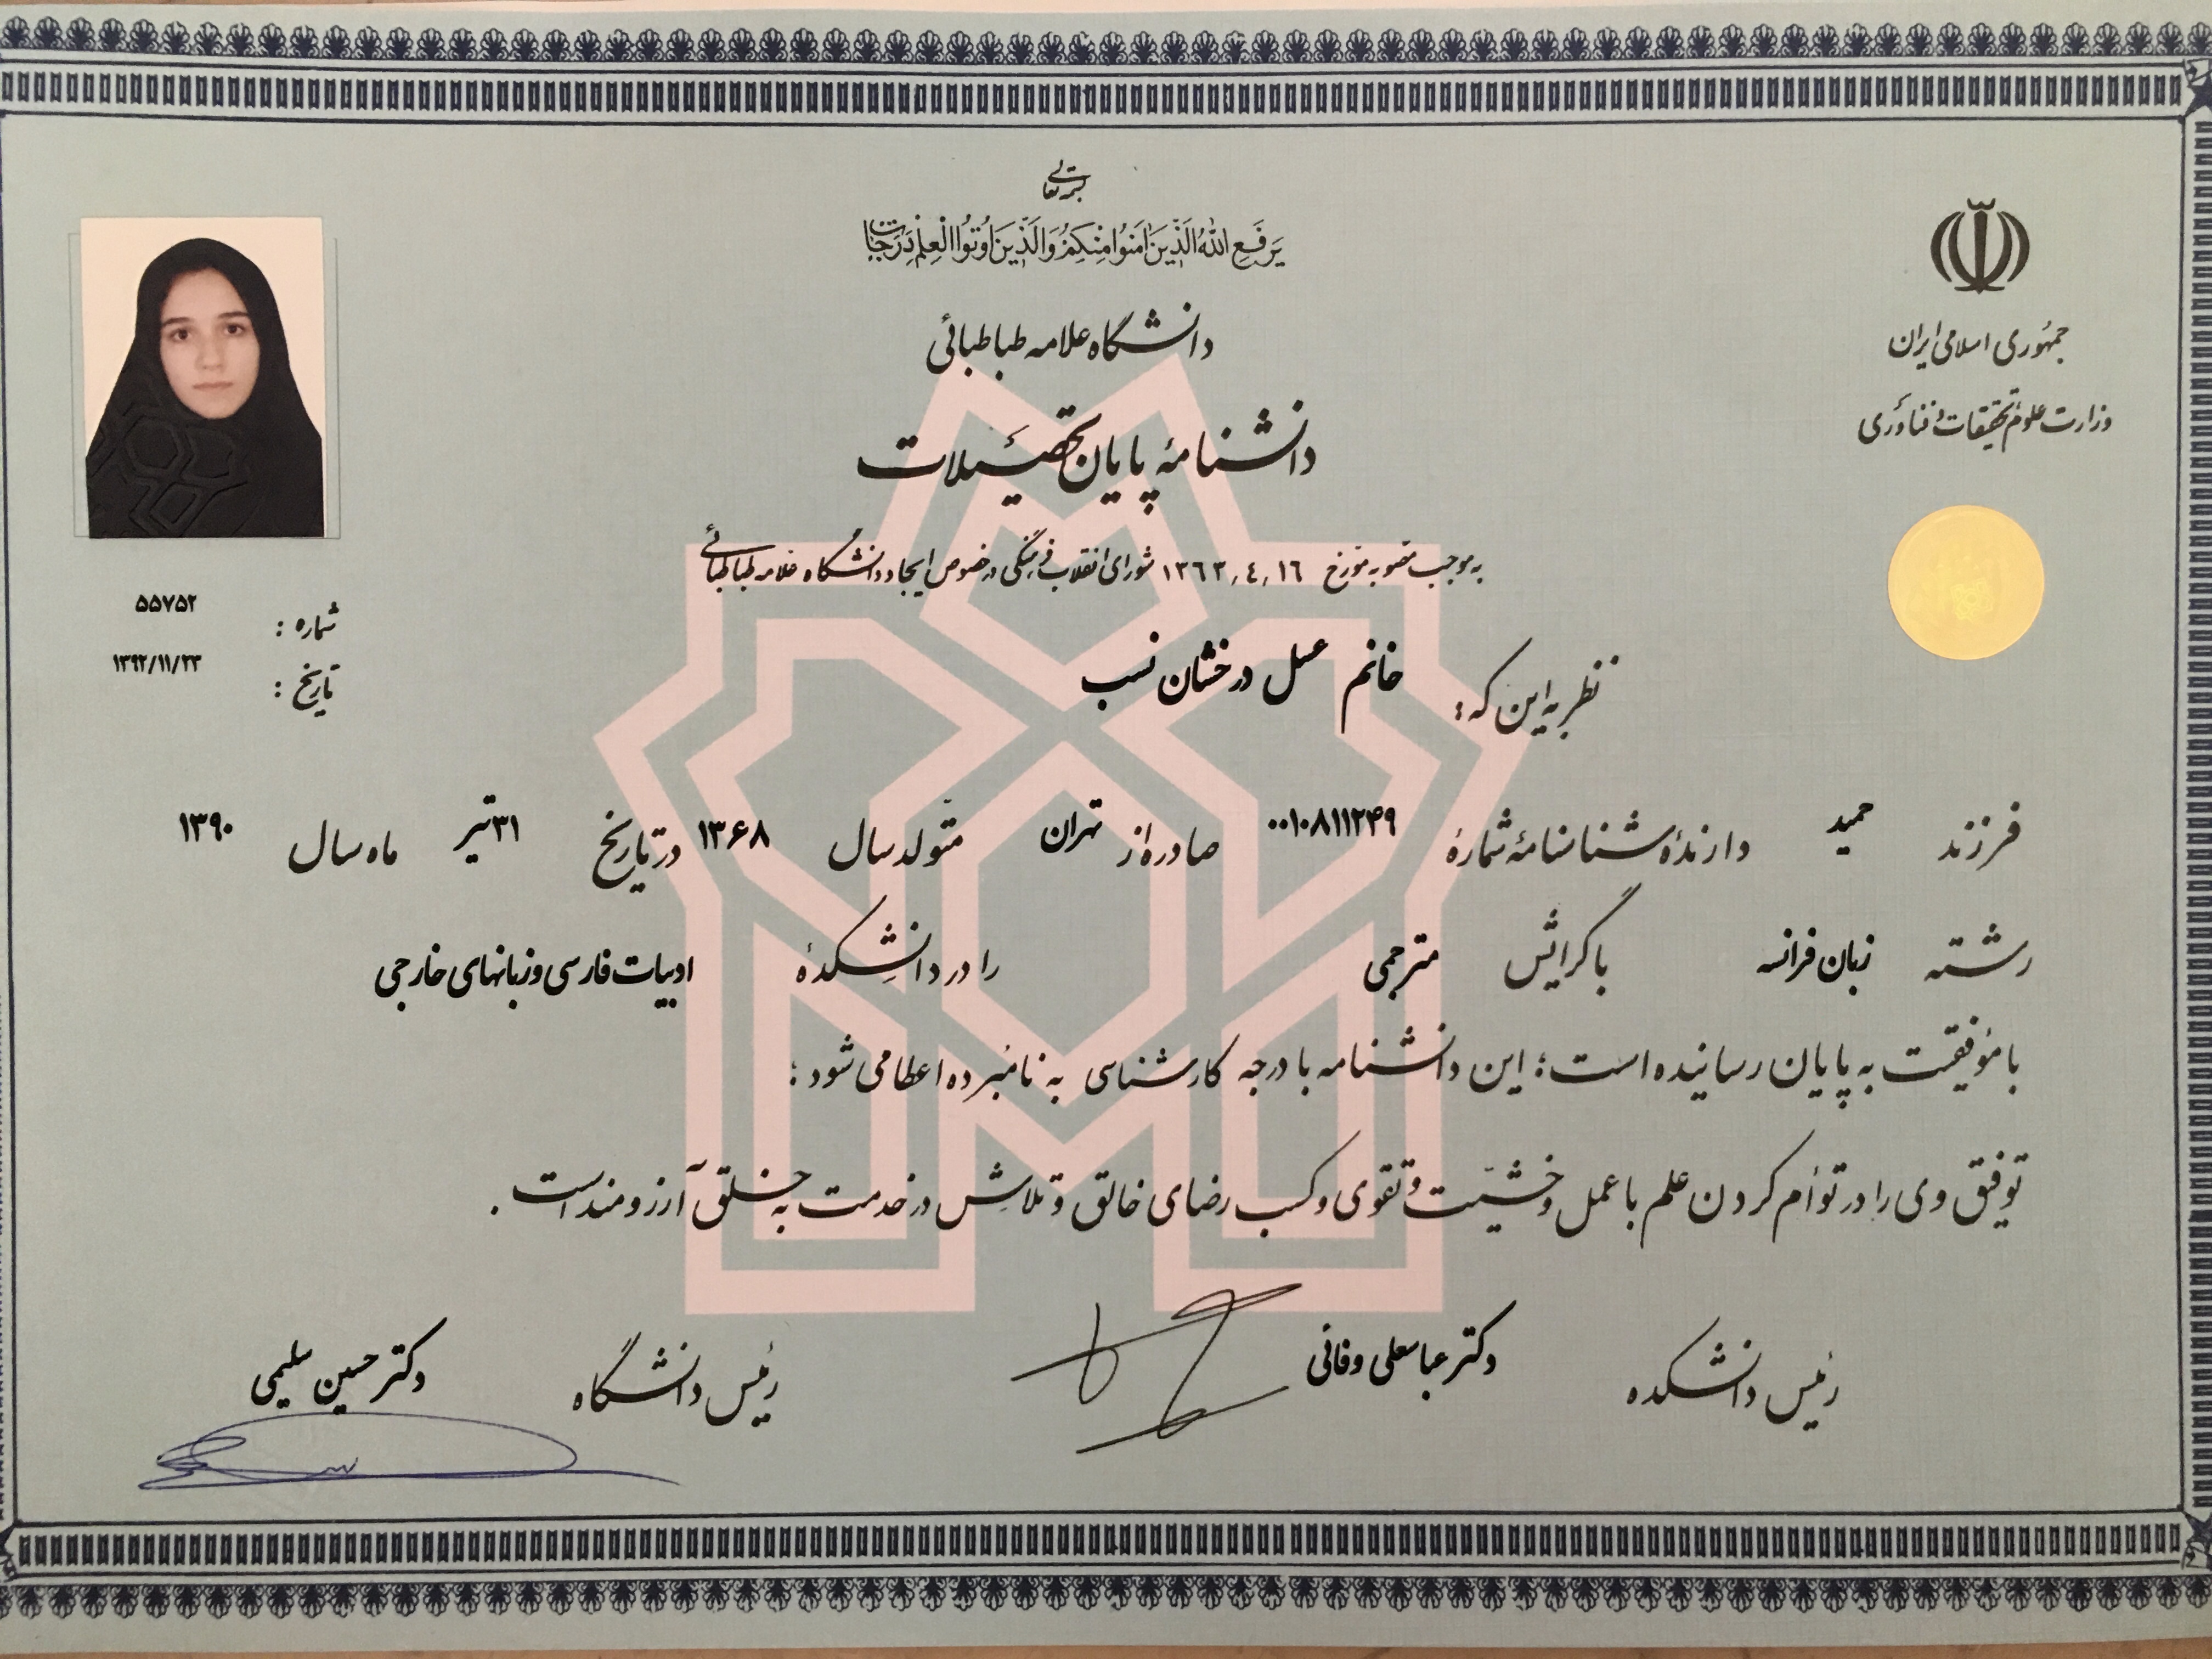 بسمه تعالی
یَرفَعِ اللهُ الَّذینَ امَنوُا مِنکُم وَالَّذینَ اُوتُوا العِلمَ دَرَجات
جمهوری اسلامی ایران
وزارت علوم تحقیقات و فناوری
دانشگاه علامه طباطبائی
دانشنامهٔ پایان تحصیلات
به موجب مصوبه مورخ ۱۳۶۳,۴,۱۶ شورای انقلاب فرهنگی در خصوص ایجاد دانشگاه علامه طباطبائی
شماره : ۵۵۷۵۲
تاریخ : ۱۳۹۲/۱۱/۲۳
نظر به این که : خانم عسل درخشان نسب
فرزند حمید دارندهٔ شناسنامهٔ شمارهٔ ۰۰۱۰۸۱۱۲۴۹ صادره از تهران متولد سال ۱۳۶۸ در تاریخ ۳۱ تیر ماه سال ۱۳۹۰
رشته زبان فرانسه با گرایش مترجمی را در دانشکدهٔ ادبیات فارسی و زبانهای خارجی
با موفقیت به پایان رسانیده است؛ این دانشنامه با درجه کارشناسی به نامبرده اعطا می شود :
توفیق وی را در توأم کردن علم با عمل و خشیّت و تقوی و کسب رضای خالق و تلاش در خدمت به خلق آرزومند است .
رئیس دانشکده دکتر عباسعلی وفائی
رئیس دانشگاه دکتر حسین سلیمی